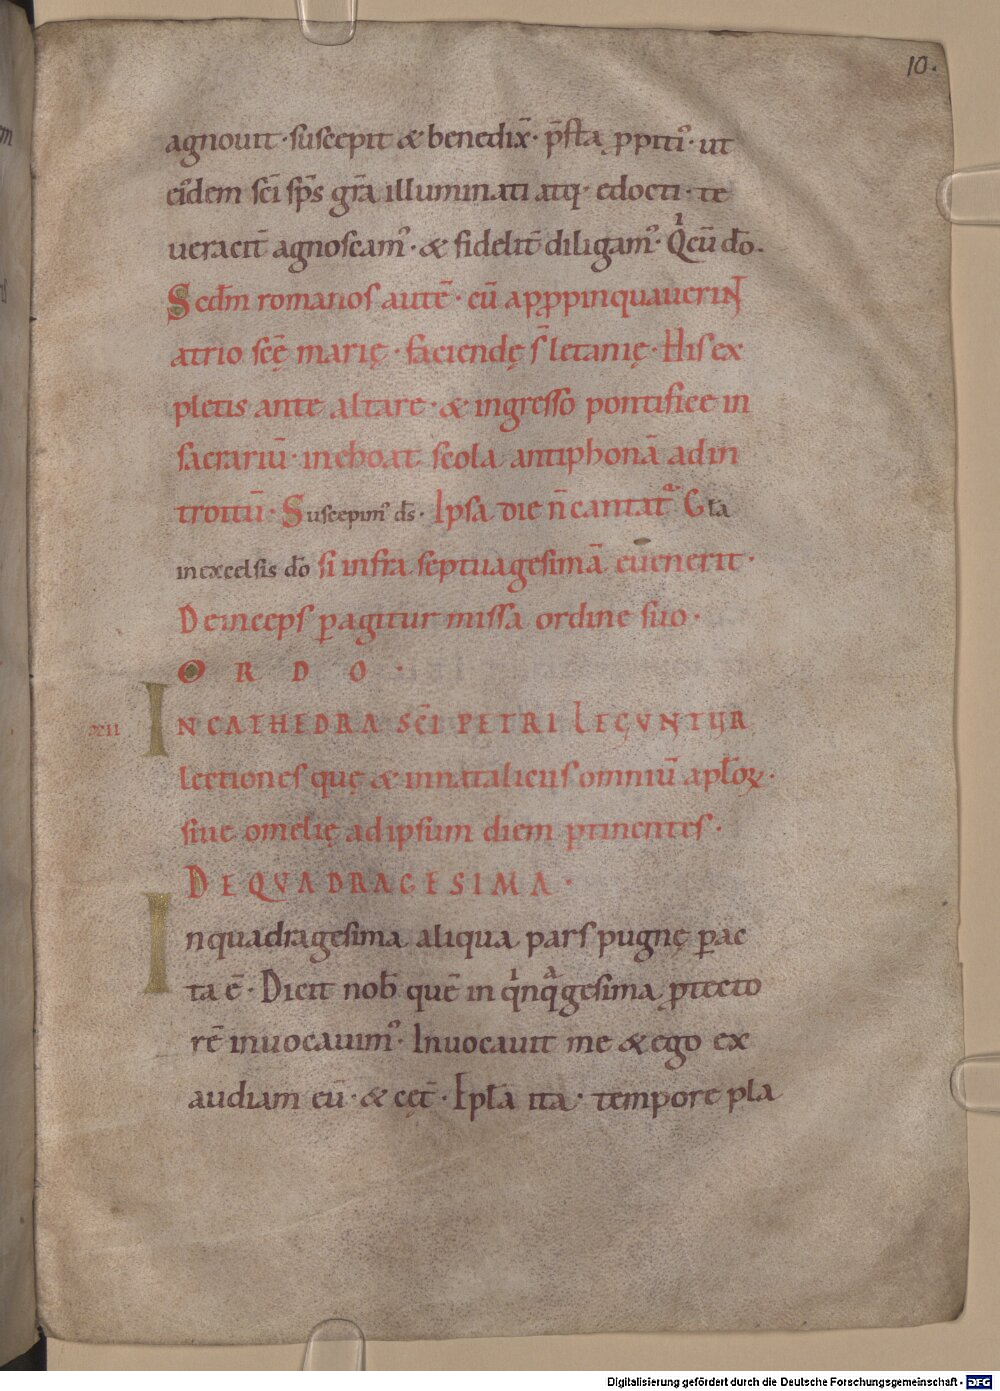 10.
agnouit · suscepit & benedix̄ · p̄sta ꝓpitiꝰ · ut
eidem sc̄i sp̄s gr̄a illuminati atq; edocti · te
ueracit̄ agnoscamꝰ · & fidelit̄ diligamꝰ · Qͥ cū dō.
Sedm̄ romanos autē · cū apꝓpinquauerint
atrio scę̄ marię · faciendę s̄ letanię · His ex
pletis ante altare · & ingresso pontifice in
sacrariū · inchoat scola antiphonā ad in
troitū · Suscepimꝰ d̄s · Ipsa die n̄ cantatᷓ Gl̄a
in excelsis dō si infra septuagesimā euenerit ·
Deinceps ꝑagitur missa ordine suo ·
ORDO ·
xii IN CATHEDRA SC̄I PETRI LEGUNTUR
lectiones quę & in nataliciis omniū apl̄oꝝ ·
siue omelię ad ipsum diem ꝑtinentes ·
DE QUADRAGESIMA ·
In quadragesima aliqua pars pugnę ꝑac
ta ē · Dicit nob̄ quē in qͥnqᷓgesima ꝓtecto
rē inuocauimꝰ · Inuocauit me & ego ex
audiam eū · & cęt̄ · Epl̄a ita · tempore pla
Digitalisierung gefördert durch die Deutsche Forschungsgemeinschaft - DFG